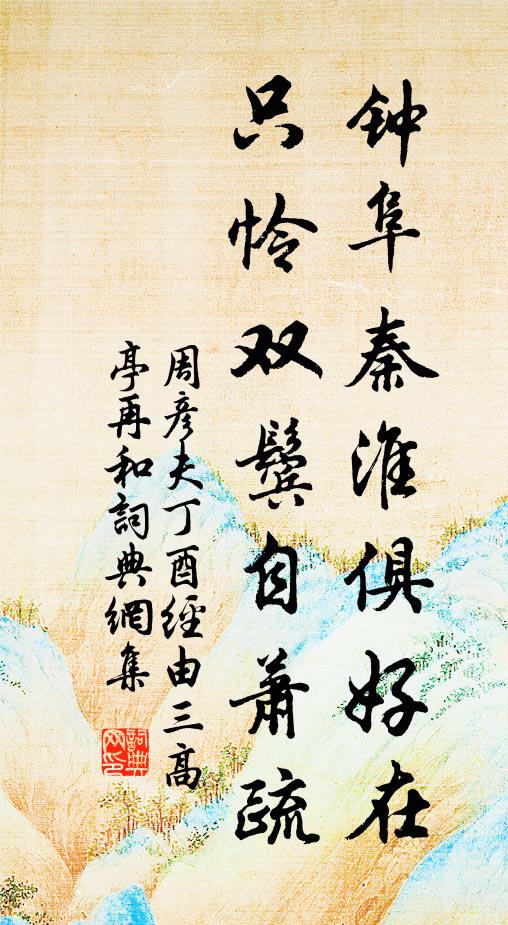 钟阜秦淮俱好在
只怜双鬓自萧疏
周彦夫丁酉经由三高
亭再和詞典網集
詞典網印